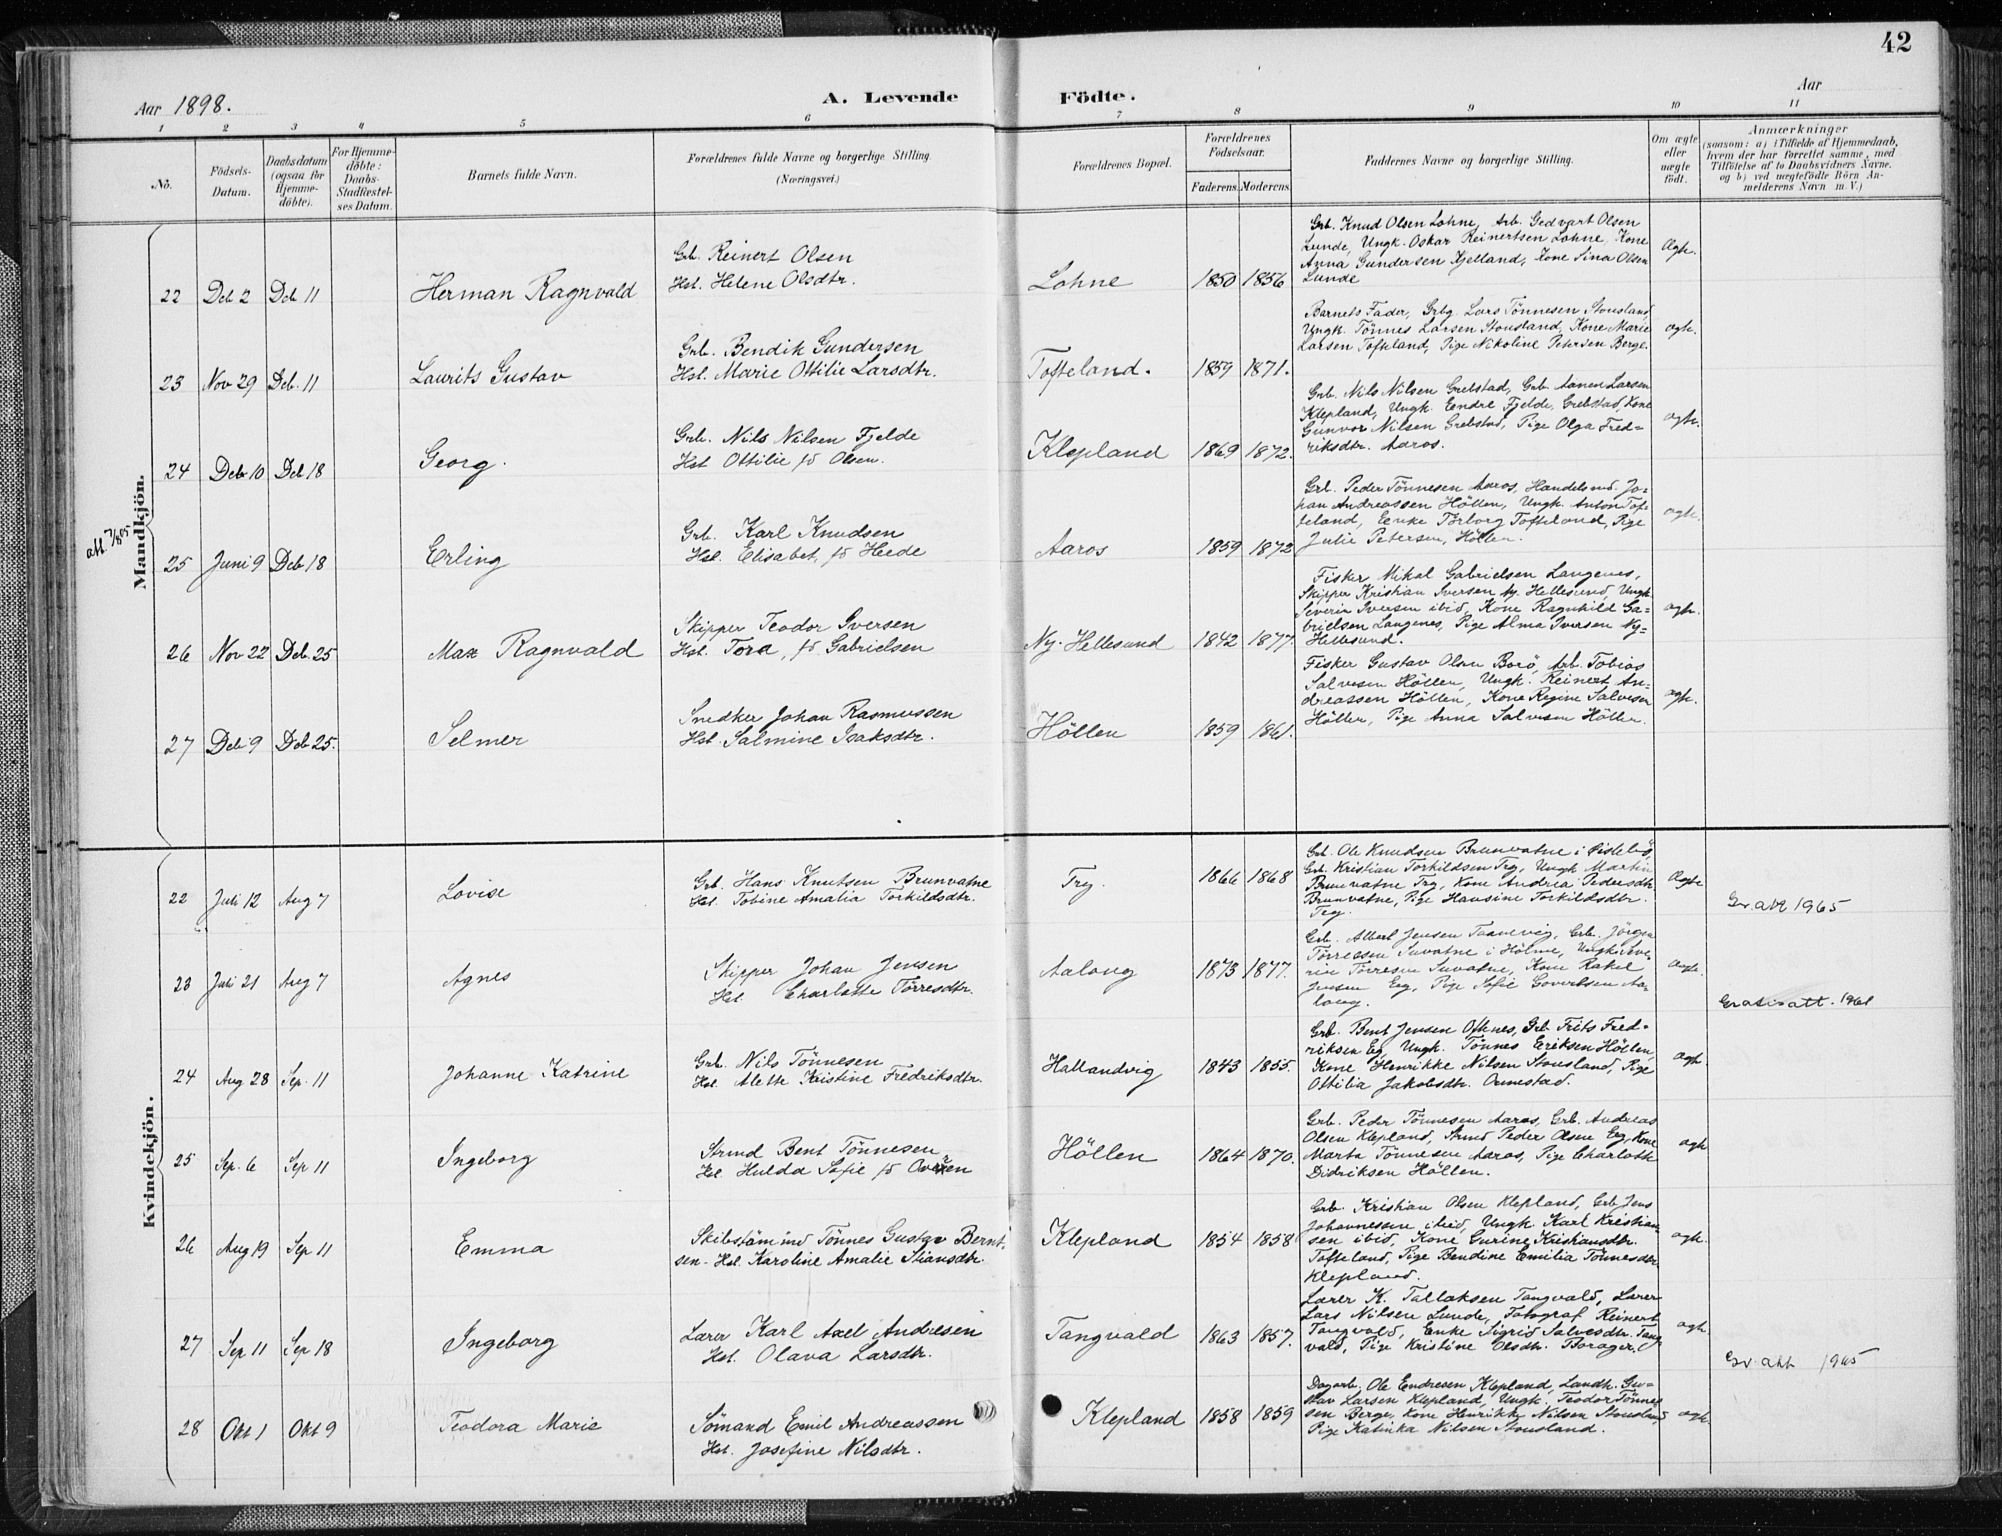 42
Aar 1898.
A. Levende Födte.
Aar
1 2 3 4 5 6 7 8 9 10 11
No.
Födsels-Datum.
Daabsdatum (ogsaa for Hjemme-döbte).
For Hjemme-döbte: Daabs-Stadfæstel-ses Datum.
Barnets fulde Navn.
Forældrenes fulde Navne og borgerlige Stilling. (Næringsvei.)
Forældrenes Bopæl.
Forældrenes Födselsaar.
Faderens. Moderens.
Faddernes Navne og borgerlige Stilling.
Om ægte eller uægte födt.
Anmærkninger
(saasom: a) i Tilfælde af Hjemmedaab,
hvem der har forrettet samme, med
Tilföielse af to Daabsvidners Navne.
og b) ved uægtefödte Börn An-
melderens Navn m. V.)
Mandkjön.
22 Deb 2 Deb 11 Herman Ragnvald
Grb. Reinert Olsen
Hst. Helene Olsdtr.
Lohne 1850 1856
Grb. Knud Olsen Lohne, Arb. Gedvart Olsen
Lunde, Ungk. Oskar Reinertsen Lohne, Kone
Anna Gundersen Kjelland, Kone Sina Olsen
Lunde
Ægte.
23 Nov 29 Deb. 11 Laurits Gustav
Grb. Bendik Gundersen
Hst. Marie Ottilie Larsdtr.
Tofteland. 1859 1871.
Barnets Fader, Grbg. Lars Tönnesen Stousland,
Ungk. Tönnes Larsen Stousland, Kone Marie
Larsen Tofteland, Pige Nikoline Petersen Berge.
ægte.
24 Deb 10 Deb 18 Georg.
Grb. Nils Nilsen Fjelde
Hst Ottilie fö Olsen.
Klepland 1869 1872.
Grb. Nils Nilsen Grebstad, Grb. Aanen Larsen
Klepland, Ungk. Endre Fjelde, Grebstad, Kone
Gunvor Nilsen Grebstad, Pige Olga Fred=
riksdtr. Aaros.
ægte.
att. 7/8 05
25 Juni 9 Deb 18 Erling
Grb. Karl Knudsen
Hst. Elisabet, fö Heede
Aaros 1859 1872
Grb. Peder Tönnesen Aaros, Handelsmd. Jo=
han Andreassen Höllen, Ungk. Anton Tof=
teland, Enke Torborg Tofteland, Pige
Julie Petersen, Höllen.
ægte.
26 Nov 22 Deb. 25 Max Ragnvald
Skipper Teodor Iversen
Hst. Tora, fö. Gabrielsen
Ny-Hellesund 1842 1877.
Fisker Mikal Gabrielsen Langenes,
Skipper Kristian Iversen Ny Hellesund, Ungk.
Severin Iversen ibid, Kone Ragnhild Ga=
brielsen Langenes, Pige Alma Iversen Ny=
Hellesund.
ægte.
27 Deb 9 Deb 25. Selmer
Snedker Johan Rasmussen
Hst. Salmine Isaksdtr.
Höllen 1859 1861.
Fisker Gustav Olsen Borö, Arb. Tobias
Salvesen Höllen, Ungk. Reinert An=
dreassen Höllen, Kone Regine Salvesen
Höllen, Pige Anna Salvesen Höllen.
ægte.
Kvindekjön.
22 Juli 12 Aug 7 Lovise
Grb. Hans Knutsen Brunvatne
Hst. Tobine Amalia Torkildsdtr.
Try. 1866 1868
Grb. Ole Knudsen Brunvatne i
Grb. Kristian Torkildsen Try, Ungk Martin
Brunvatne Try, Kone Andrea Pedersdtr.
Brunvatne, Pige Hansine Torkildsdtr.
Try.
Ægte
Gr. att 1965
23 Juli 21 Aug 7 Agnes
Skipper Johan Jensen
Hst Charlotte Törresdtr.
Aalong 1873 1877.
Grb. Albert Jensen Taanevig, Grb. Jörgen
Törressen Suvatne i Holme, Ungk. Seve=
rin Törresen Suvatne, Kone Rakel
Jensen Eeg, Pige Sofie Govertsen Aa=
long.
ægte.
Gratis att. 1961
24 Aug 28 Sep. 11 Johanne Katrine
Grb. Nils Tönnesen
Hst. Alette Kristine Fredriksdtr.
Hallandvig 1843 1855.
Grb. Bent Jensen Oftenes, Grb. Frits Fred=
riksen Eeg, Ungk. Tönnes Eriksen Höllen,
Kone Henrikke Nilsen Stousland, Pige
Ottilia Jakobsdtr. Ormestad.
ægte
25 Sep. 6 Sep 11 Ingeborg
Strmd Bent Tönnesen
Hst. Hulda Sofie fö
Höllen 1864 1870.
Grb. Peder Tönnesen Aaros, Grb. Andreas
Olsen Klepland, Strmd Peder Olsen Eeg, Kone
Marta Tönnesen Aaros, Pige Charlotte
Didriksen Höllen.
ægte
26 Aug 19 Sep 11 Emma
Skibstömmd Tönnes Gustav Bernt=
sen - Hst. Karoline Amalie Stiansdtr.
Klepland 1854 1858
Grb. Kristian Olsen Klepland, Grb Jens
Johannessen ibid, Ungk. Karl Kristian=
sen ibid, Kone Gurine Kristiansdtr.
Tofteland, Pige Bendine Emilia Tönnesdtr
Klepland.
ægte.
27 Sep 11 Sep 18 Ingeborg
Lærer Karl Axel Andresen
Hst. Olava Larsdtr.
Tangvald 1863 1857.
Lærer K. Tallaksen Tangvald, Lærer
Lars Nilsen Lunde, Fotograf Reinert
Tangvald, Enke Sigrid Salvesdtr. Tang
vald, Pige Kristine Olsdtr. Borager.
ægte.
Gr. att 1965
28 Okt 1 Okt 9 Teodora Marie
Sömand Emil Andreassen
Hst. Josefine Nilsdtr.
Klepland 1858 1859
Dagarb. Ole Endresen Klepland, Landh. Gu=
stav Larsen Klepland, Ungk. Teodor Tönnes
sen Berge, Kone Henrikke Nilsen Stousland,
Pige Katinka Nilsen Stousland.
ægte.